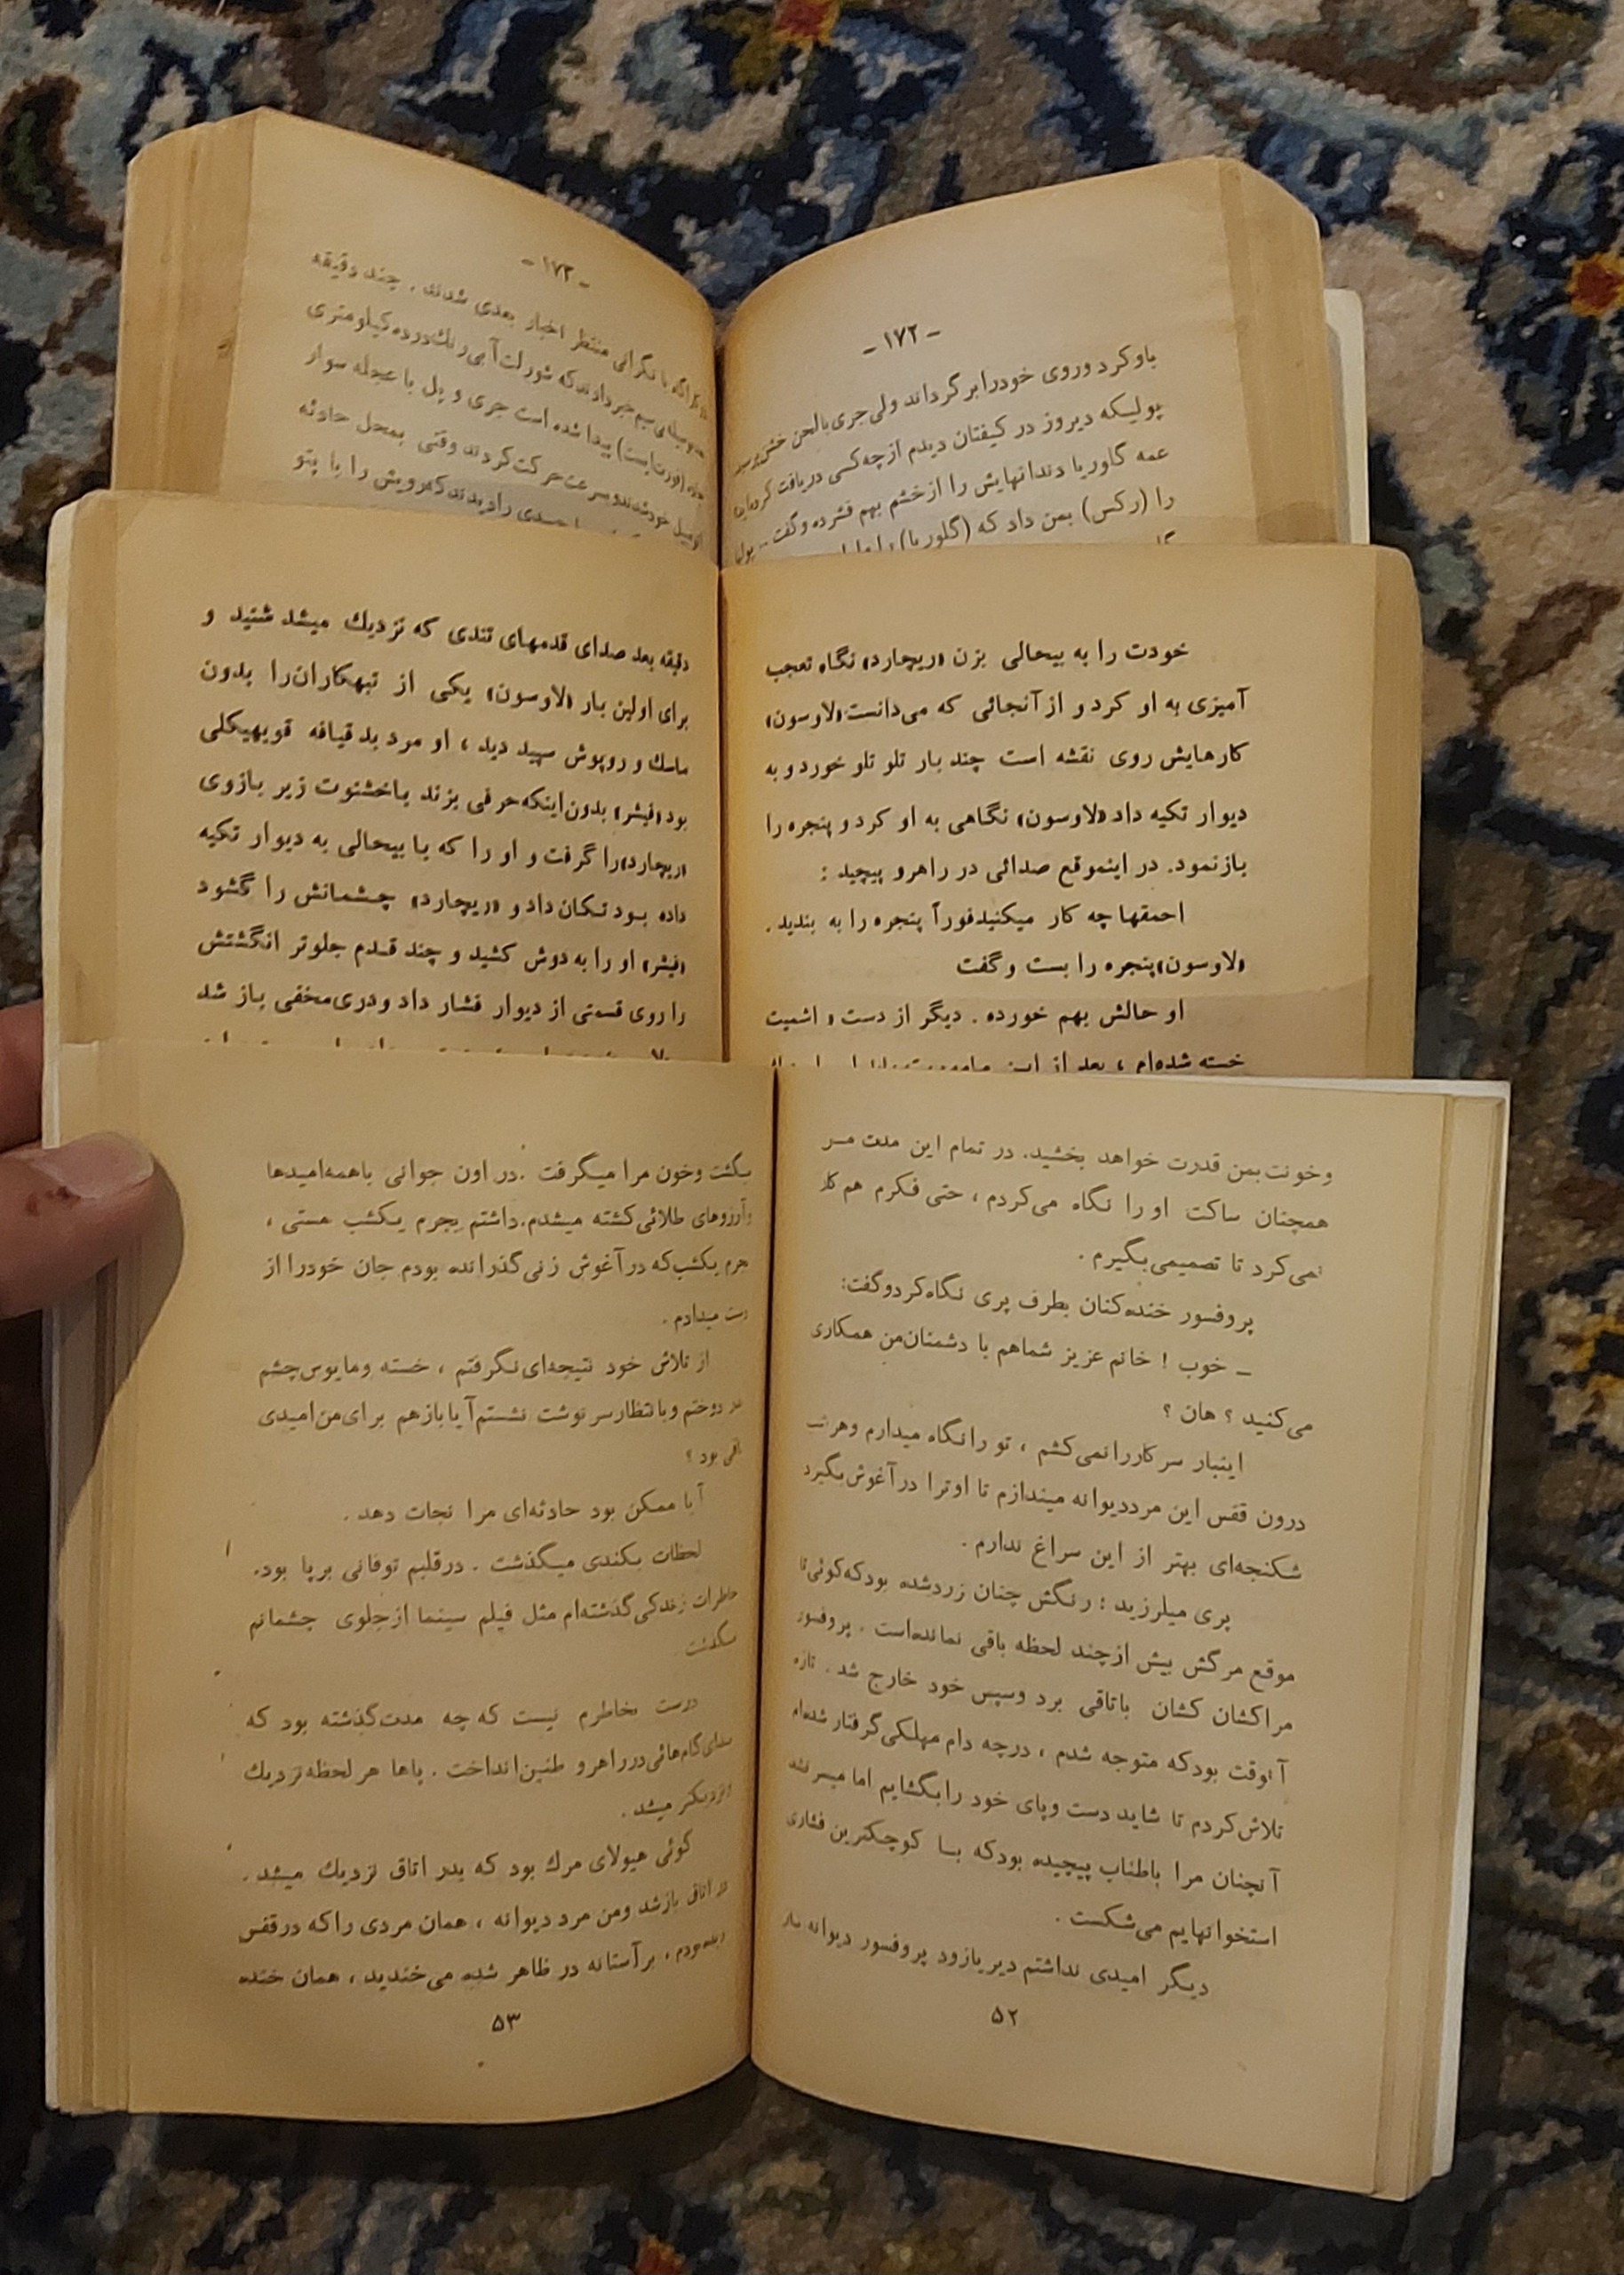 - ۱۷۲ -
باو کرد و روی خودرا برگرداند ولی جری بالحن خشنی
پولیکه دیروز در کیفتان دیدم از چه کسی دریافت کرده‌اید
عمه گلوریا دندانهایش را از خشم بهم فشرده و گفت ..
را (رکس) بمن داد که (گلوریا) را
- ۱۷۳ -
با نگرانی منتظر اخبار بعدی شدند . چند دقیقه
بی‌سیم خبر دادند که شورلت آبی رنك در ده کیلومتری
پیدا شده است جری و پل با عجله سوار
خود شدند و بسرعت حرکت کردند وقتی بمحل حادثه
جسدی را دیدند که رویش را با پتو
خودت را به بیحالی بزن «ریچارد» نگاه تعجب
آمیزی به او کرد و از آنجائی که می‌دانست «لاوسون»
کارهایش روی نقشه است چند بار تلو تلو خورد و به
دیوار تکیه داد «لاوسون» نگاهی به او کرد و پنجره را
باز نمود. در اینموقع صدائی در راهرو پیچید :
احمقها چه کار میکنید فوراً پنجره را به بندید .
«لاوسون» پنجره را بست و گفت
او حالش بهم خورده . دیگر از دست « اشمیت
خسته شده‌ام ، بعد از این
دقیقه بعد صدای قدمهای تندی که نزدیك میشد شنید و
برای اولین بار «لاوسون» یکی از تبهکاران را بدون
ماسك و روپوش سپید دید ، او مرد بد قیافه قویهیکلی
بود «فیشر» بدون اینکه حرفی بزند باخشنوت زیر بازوی
«ریچارد» را گرفت و او را که با بیحالی به دیوار تکیه
داده بود تکان داد و «ریچارد» چشمانش را گشود
«فیشر» او را به دوش کشید و چند قدم جلوتر انگشتش
را روی قسمتی از دیوار فشار داد و دری مخفی باز شد
وخونت بمن قدرت خواهد بخشید. در تمام این مدت من
همچنان ساکت او را نگاه می‌کردم ، حتی فکرم هم کار
نمی‌کرد تا تصمیمی بگیرم .
پروفسور خنده‌کنان بطرف پری نگاه کرد و گفت:
ـ خوب ! خانم عزیز شماهم با دشمنان من همکاری
می‌کنید ؟ هان ؟
اینبار سرکار را نمی‌کشم ، تو را نگاه میدارم وهر شب
درون قفس این مرد دیوانه میندازم تا او ترا در آغوش بگیرد
شکنجه‌ای بهتر از این سراغ ندارم .
پری میلرزید ؛ رنگش چنان زرد شده بود که گوئی تا
موقع مرگش بیش از چند لحظه باقی نمانده است . پروفسور
مرا کشان کشان باتاقی برد وسپس خود خارج شد . تازه
آنوقت بود که متوجه شدم ، در چه دام مهلکی گرفتار شده‌ام
تلاش کردم تا شاید دست وپای خود را بگشایم اما میسر نشد
آنچنان مرا باطناب پیچیده بود که بسا کوچکترین فشاری
استخوانهایم می‌شکست .
دیگر امیدی نداشتم دیر یا زود پروفسور دیوانه
۵۲
میگشت وخون مرا میگرفت . در اون جوانی با همه امیدها
وآرزوهای طلائی کشته میشدم. داشتم بجرم یکشب مستی ،
جرم یکشب که در آغوش زنی گذرانده بودم جان خودرا از
دست میدادم .
از تلاش خود نتیجه‌ای نگرفتم ، خسته ومایوس چشم
بدر دوختم وبا نتظار سرنوشت نشستم آیا باز هم برای من امیدی
باقی بود ؟
آیا ممکن بود حادثه‌ای مرا نجات دهد .
لحظات بکندی میگذشت . در قلبم توفانی برپا بود.
خاطرات زندگی گذشته‌ام مثل فیلم سینما از جلوی چشمانم
میگذشت .
درست بخاطرم نیست که چه مدت گذشته بود که
صدای گام‌هائی در راهرو طنین انداخت . پاها هر لحظه نزدیك
ونزدیکتر میشد .
گوئی هیولای مرك بود که بدر اتاق نزدیك میشد .
در اتاق باز شد ومن مرد دیوانه ، همان مردی را که در قفس
دیده بودم ، بر آستانه در ظاهر شده می‌خندید ، همان خنده
۵۳